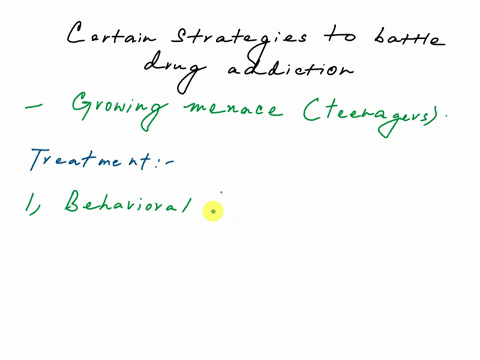 Certain Strategies to battle
drug addiction
- Growing menace (teenagers).
Treatment:-
1, Behavioral